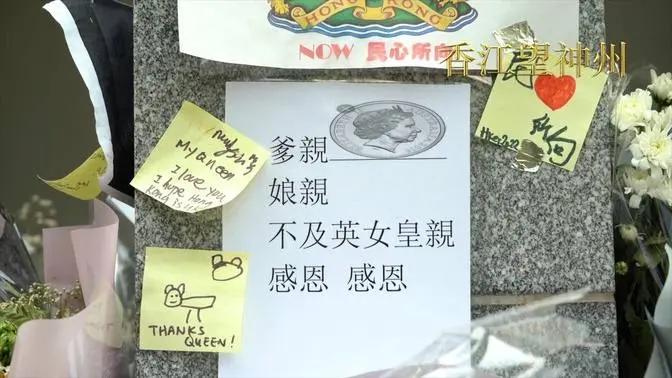 HONG KONG
NOW 民心所向
香江望神州
爹親
娘親
不及英女皇親
感恩 感恩
My Queen
I love you
I hope Hong
Kong is
THANKS
QUEEN!
民
心
所
向